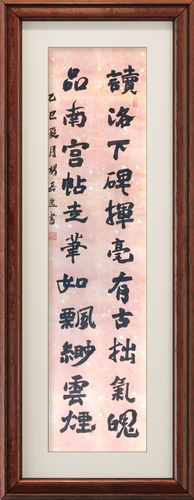 讀洛下碑揮毫有古拙氣魄
品南宫帖走筆如飄緲雲煙
乙巳夏月楊
書